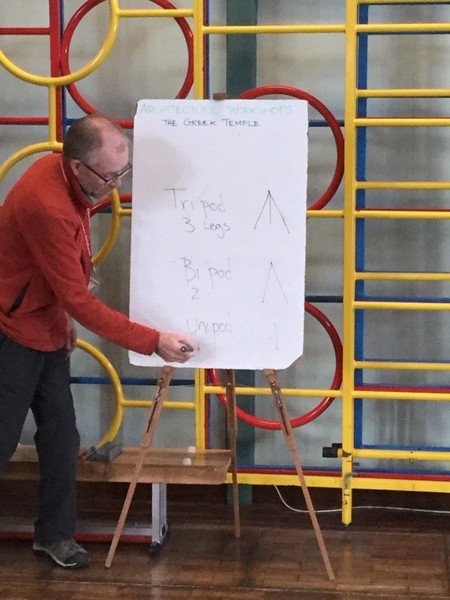 ARCHITECTURE WORKSHOPS
THE GREEK TEMPLE
Tripod
3 Legs
Bipod
2
Unipod
1